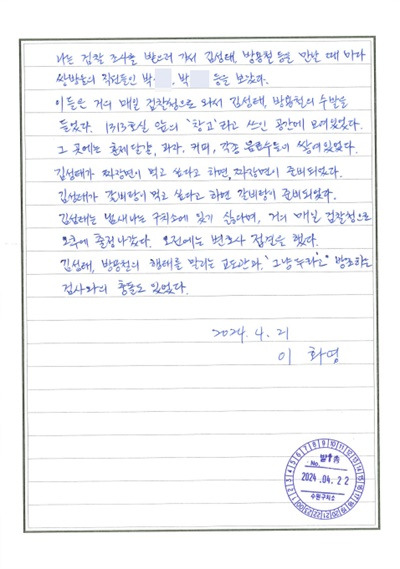 나는 검찰 조사를 받으러 가서 김성태, 방용철 등을 만날 때 마다
쌍방울의 직원들인 박 , 박 등을 보았다.
이들은 거의 매일 검찰청으로 와서 김성태, 방용철의 수발을
들었다. 1313호실 앞의 '창고'라고 쓰인 공간에 모여있었다.
그 곳에는 훈제 단알, 과자, 커피, 각종 음료수들이 쌓여있었다.
김성태가 짜장면이 먹고 싶다고 하면, 짜장면이 준비되었다.
김성태가 갈비탕이 먹고 싶다고 하면 갈비탕이 준비되었다.
김성태는 냄새나는 구치소에 있기 싫다며, 거의 매일 검찰청으로
오후에 출정나갔다. 오전에는 변호사 접견을 했다.
김성태, 방용철의 행태를 말리는 교도관과 "그냥 두라고" 방조하는
검사와의 충돌도 있었다.
2024. 4. 21
이 화영
No.
2024. 04. 22
수원구치소